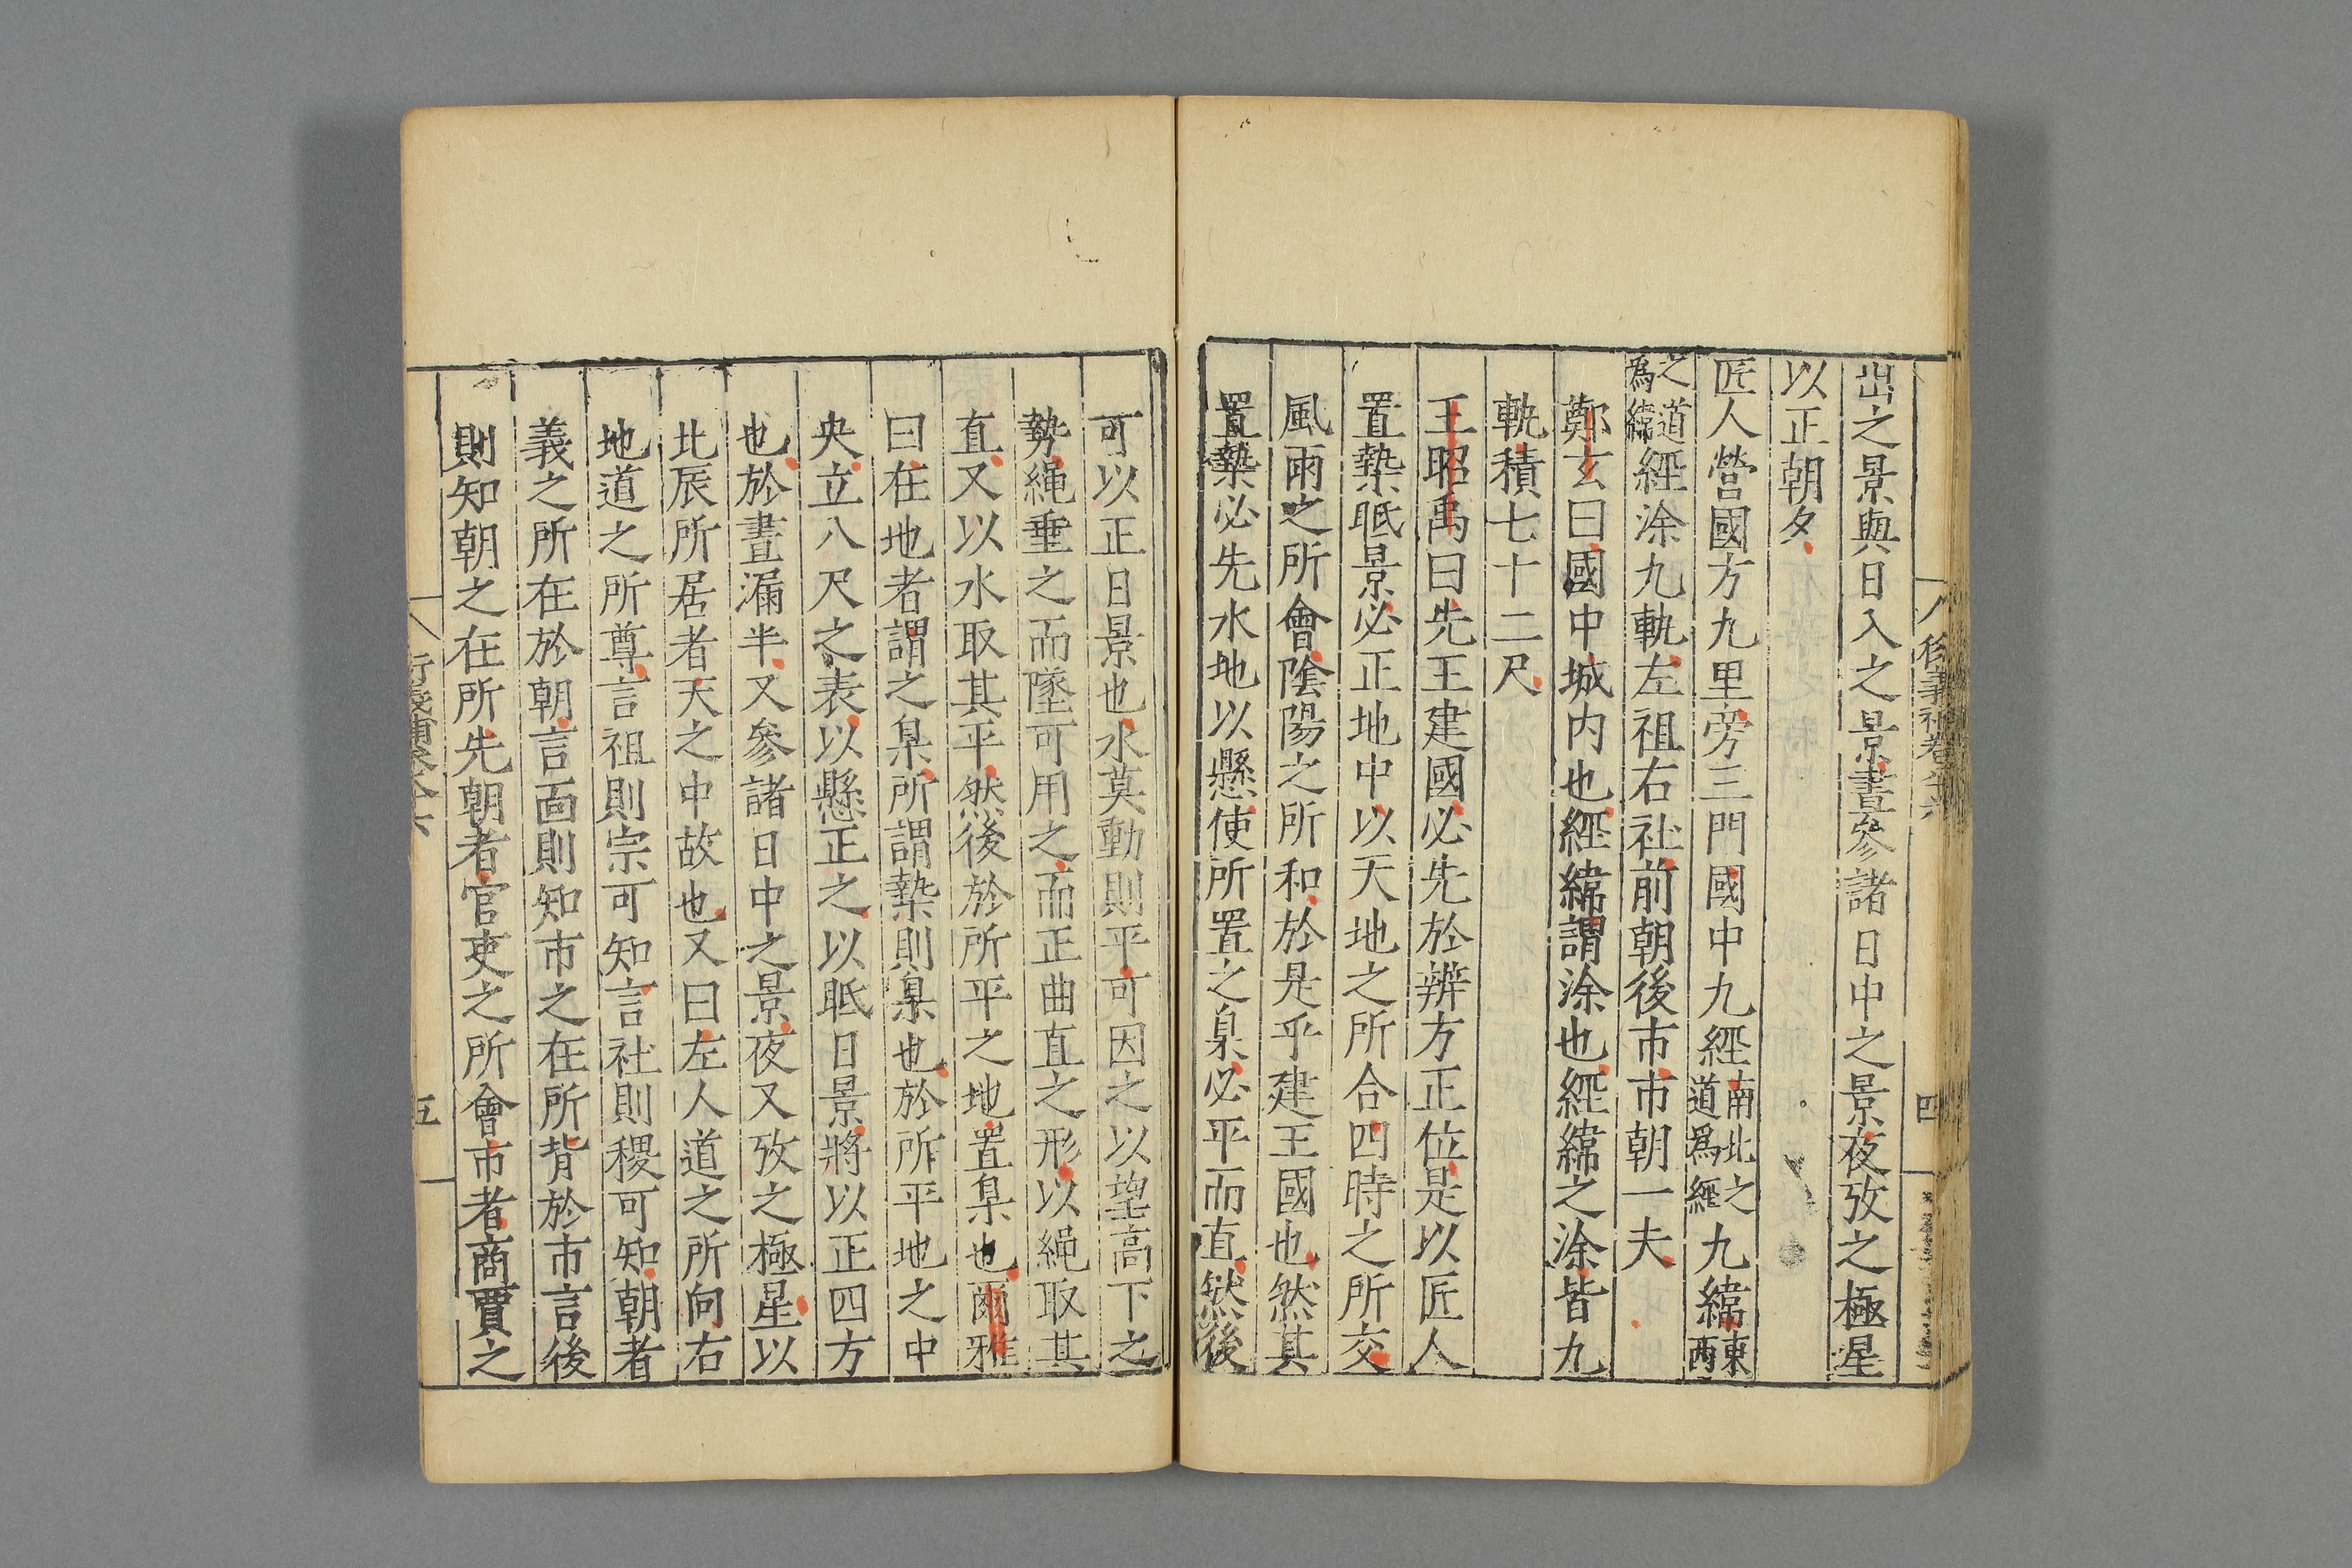 出之景與日入之景晝參諸日中之景夜攷之極星
以正朝夕
匠人營國方九里旁三門國中九經南北之道爲經九緯東西
之道爲緯經涂九軌左祖右社前朝後市市朝一夫
鄭玄曰國中城内也經緯謂涂也經緯之涂皆九
軌積七十二尺
王昭禹曰先王建國必先於辨方正位是以匠人
置槷眂景必正地中以天地之所合四時之所交
風雨之所會陰陽之所和於是乎建王國也然其
置槷必先水地以懸使所置之臬必平而直然後
四
可以正日景也水莫動則平可因之以望高下之
勢繩垂之而墜可用之而正曲直之形以繩取其
直又以水取其平然後於所平之地置臬也爾雅
曰在地者謂之臬所謂槷則臬也於所平地之中
央立八尺之表以懸正之以眂日景將以正四方
也於晝漏半又參諸日中之景夜又攷之極星以
北辰所居者天之中故也又曰左人道之所向右
地道之所尊言祖則宗可知言社則稷可知朝者
義之所在於朝言面則知市之在所背於市言後
則知朝之在所先朝者官吏之所會市者商賈之
五